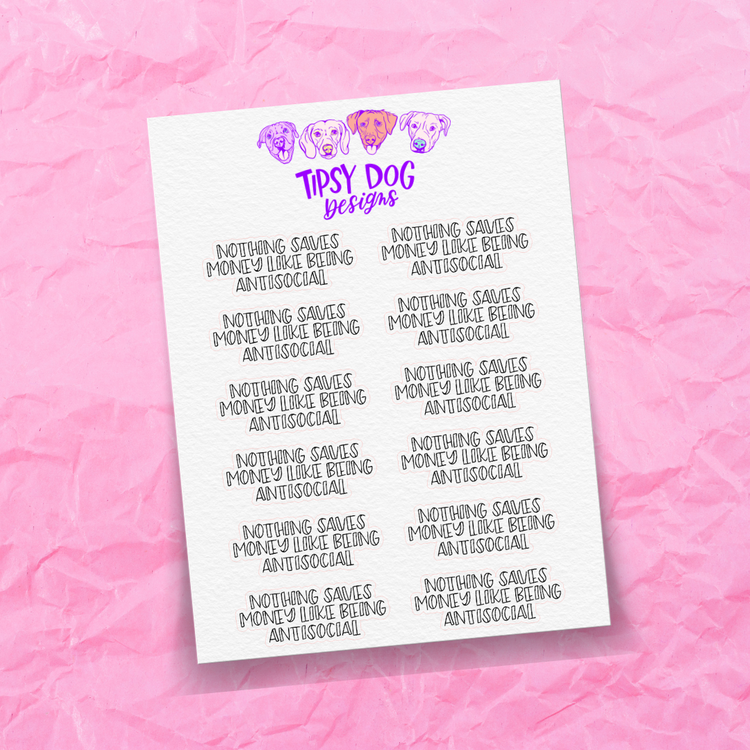 TIPSY DOG
Designs
NOTHING SAVES
MONEY LIKE BEING
ANTISOCIAL
NOTHING SAVES
MONEY LIKE BEING
ANTISOCIAL
NOTHING SAVES
MONEY LIKE BEING
ANTISOCIAL
NOTHING SAVES
MONEY LIKE BEING
ANTISOCIAL
NOTHING SAVES
MONEY LIKE BEING
ANTISOCIAL
NOTHING SAVES
MONEY LIKE BEING
ANTISOCIAL
NOTHING SAVES
MONEY LIKE BEING
ANTISOCIAL
NOTHING SAVES
MONEY LIKE BEING
ANTISOCIAL
NOTHING SAVES
MONEY LIKE BEING
ANTISOCIAL
NOTHING SAVES
MONEY LIKE BEING
ANTISOCIAL
NOTHING SAVES
MONEY LIKE BEING
ANTISOCIAL
NOTHING SAVES
MONEY LIKE BEING
ANTISOCIAL